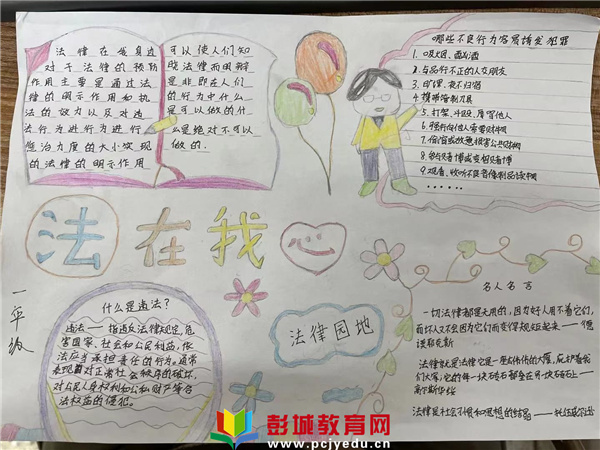 法律在我身边
对于法律的预防
作用主要是通过法
律的明示作用和执
法的效力以及对违
法行为进行行为进行
惩治力度的大小实现
的法律的明示作用
可以使人们知
晓法律而明辨
是非即在人们
的行为中什么
是可以做的什
么是绝对不可以
做的.
哪些不良行为容易诱发犯罪
1.吸烟、酗酒
2.与品行不正的人交朋友
3.旷课、夜不归宿
4.携带管制刀具
5.打架、斗殴、辱骂他人
6.强行向他人索要财物
7.偷窃或故意损害公共财物
8.参与赌博或变相赌博
9.观看、收听不良音像制品读物
......
法在我心
一年级
什么是违法?
违法——指违反法律规定,危
害国家、社会和公民利益,依
法应当承担责任的行为。通常
表现为对正常社会秩序的破坏,
对公民人身权利和公私财产等合
法权益的侵犯。
法律园地
名人名言
一切法律都是无用的,因为好人用不着它们,
而坏人又不会因为它们而变得规矩起来——德
谟耶克斯
法律就是法律它是一座雄伟的大厦,庇护着我
们大家;它的每一块砖石都垒在另一块砖石上——
高尔斯华绥
法律是社会习惯和思想的结晶——托伍威尔逊
彭城教育网
www.pcjyedu.cn